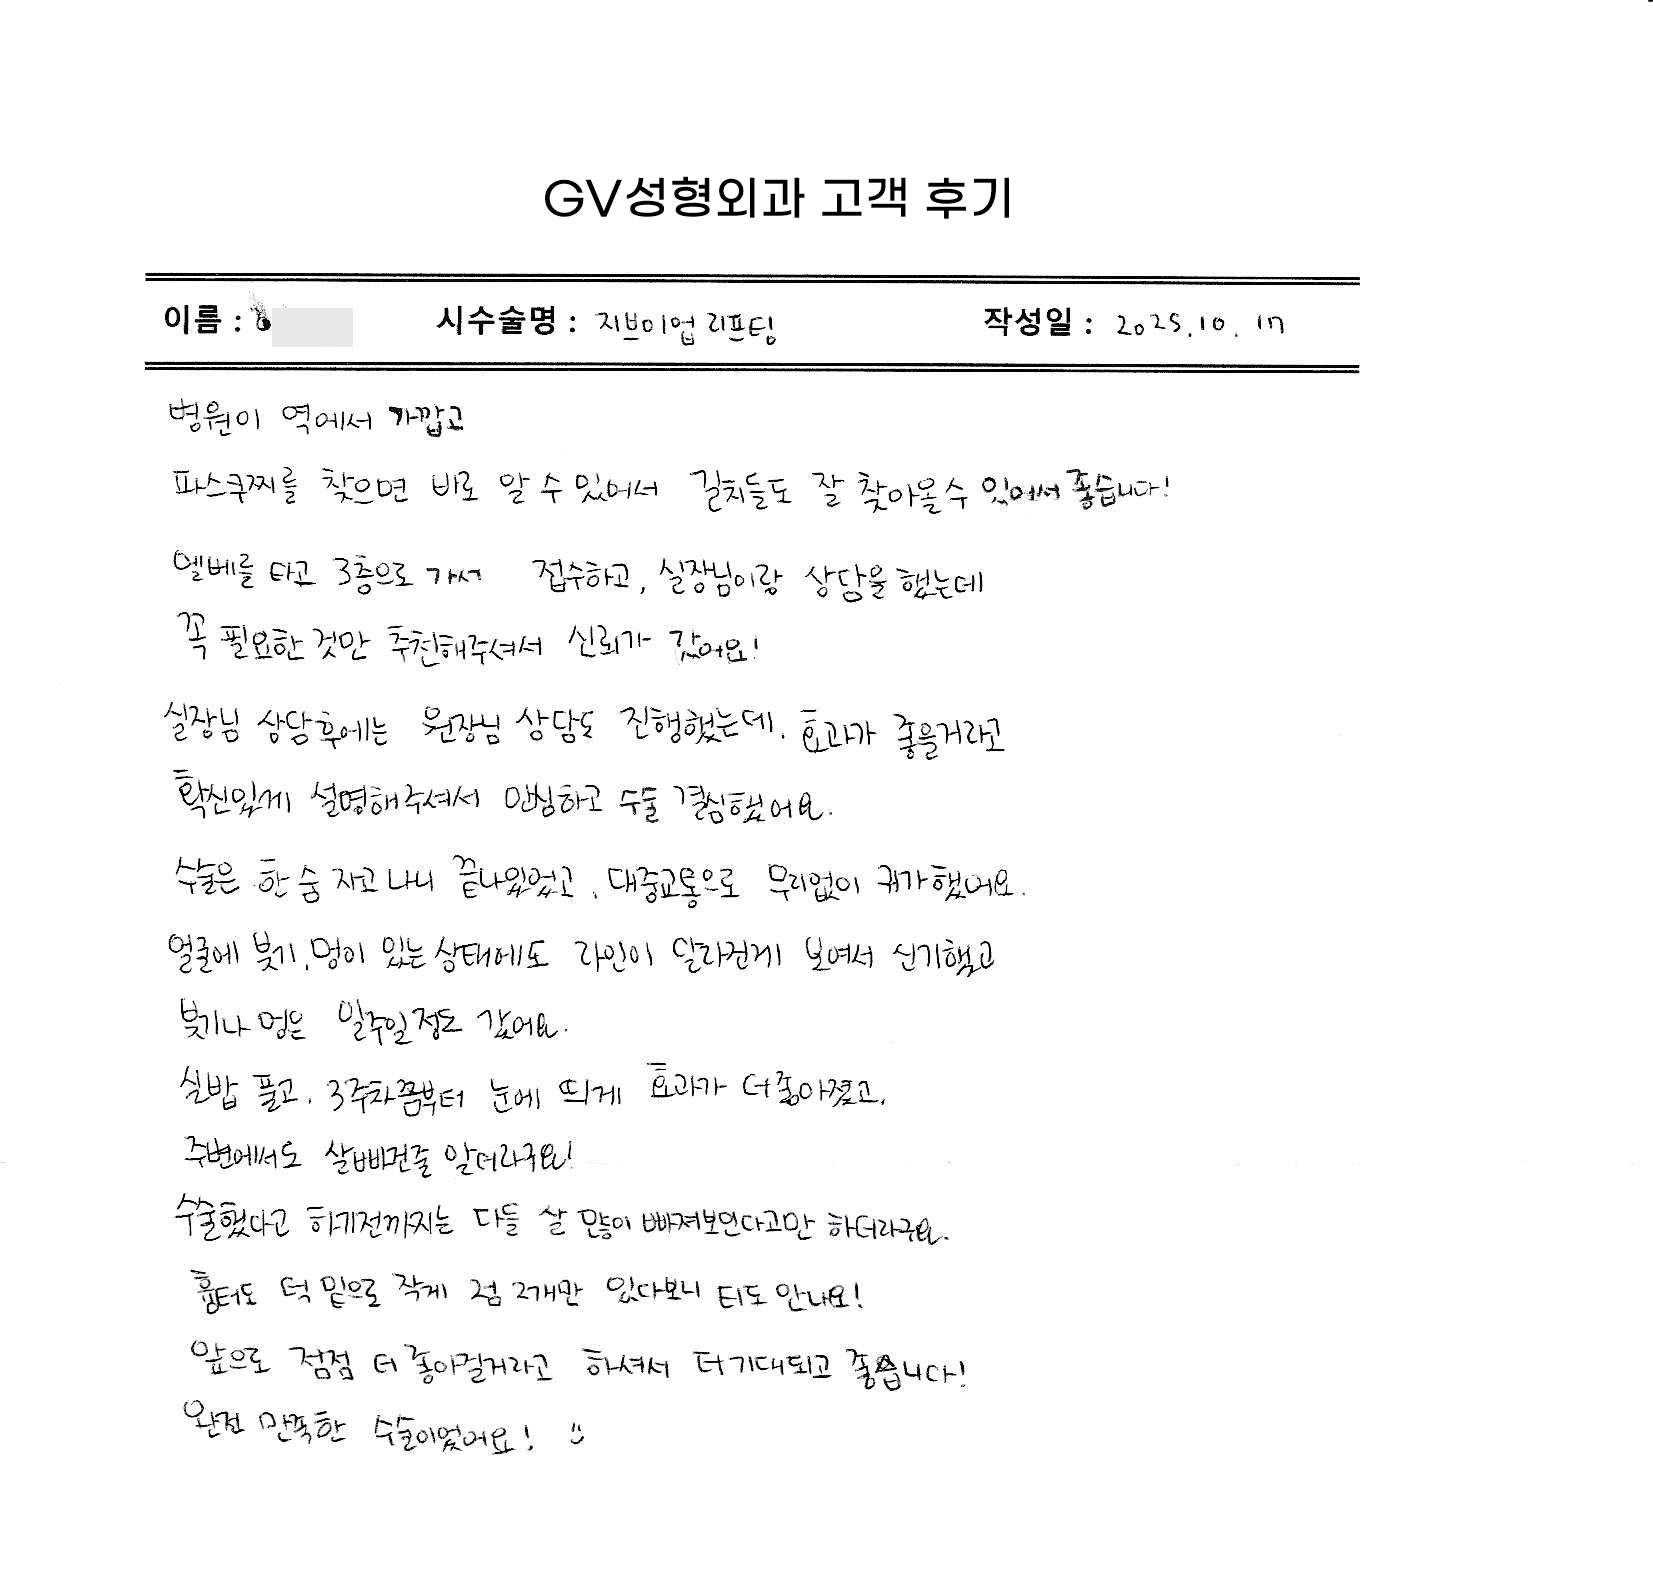 GV성형외과 고객 후기
이름 : 시수술명 : 지브이업리프팅 작성일 : 2025.10.17
병원이 역에서 가깝고
파스쿠찌를 찾으면 바로 알 수 있어서 길치들도 잘 찾아올수 있어서 좋습니다!
엘베를 타고 3층으로 가서 접수하고, 실장님이랑 상담을 했는데
꼭 필요한 것만 추천해주셔서 신뢰가 갔어요!
실장님 상담후에는 원장님 상담도 진행했는데, 효과가 좋을거라고
확신있게 설명해주셔서 안심하고 수술 결심했어요.
수술은 한 숨 자고 나니 끝나있었고, 대중교통으로 무리없이 귀가했어요.
얼굴에 붓기, 멍이 있는 상태에도 라인이 달라진게 보여서 신기했고
붓기나 멍은 일주일정도 갔어요.
실밥 풀고, 3주차쯤부터 눈에 띄게 효과가 더 좋아졌고,
주변에서도 살빠진줄 알더라구요!
수술했다고 하기전까지는 다들 살 많이 빠져보인다고만 하더라구요.
흉터도 턱 밑으로 작게 점 2개만 있다보니 티도 안나요!
앞으로 점점 더 좋아질거라고 하셔서 더 기대되고 좋습니다!
완전 만족한 수술이었어요! :)